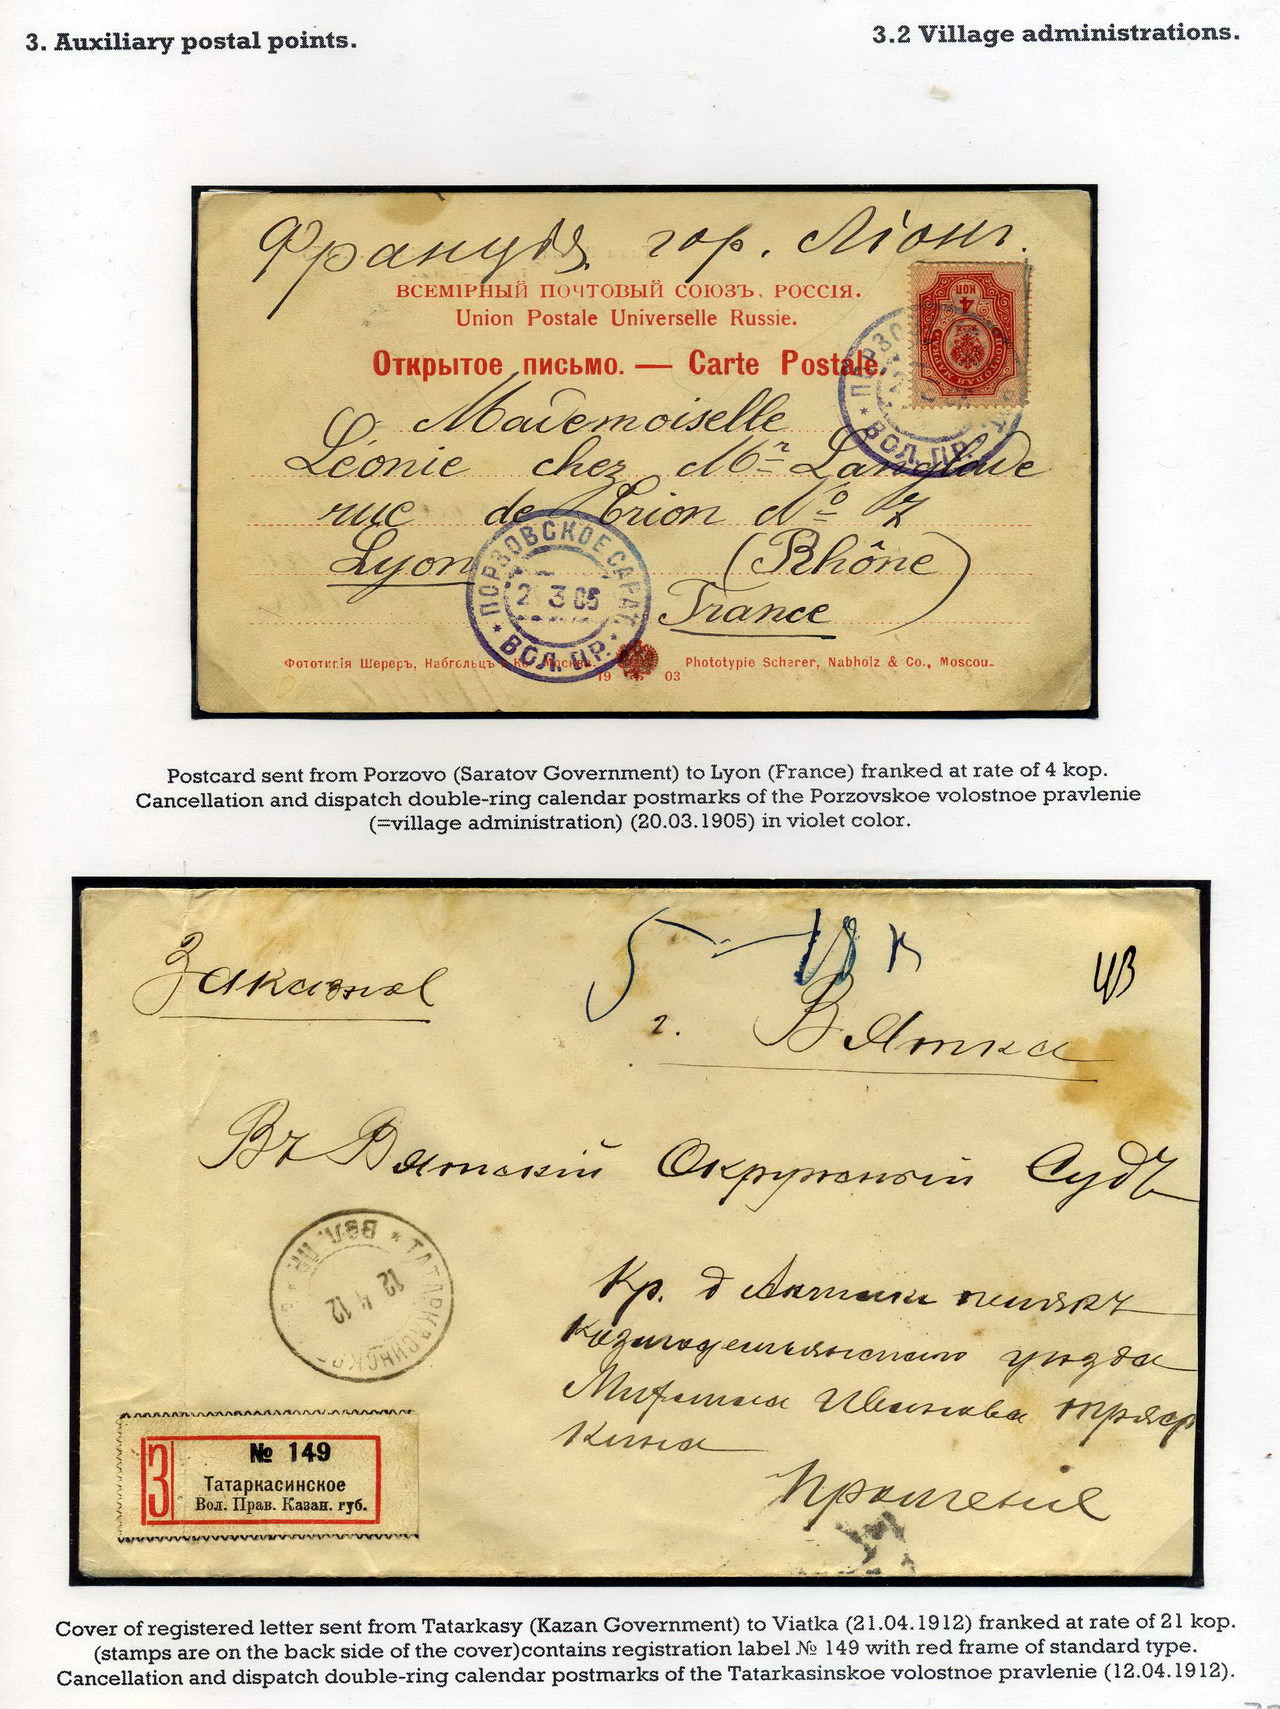 3. Auxiliary postal points.
3.2 Village administrations.
Франція. гор. Ліонъ.
ВСЕМІРНЫЙ ПОЧТОВЫЙ СОЮЗЪ. РОССІЯ.
Union Postale Universelle Russie.
Открытое письмо. — Carte Postale.
4 КОП
ПОРЗО
ВОЛ. ПР.
Mademoiselle
Léonie chez Mr Langlade
rue de Trion No 7
Lyon (Rhône)
France
ПОРЗОВСКОЕ САРАТ.
2 3 05
ВОЛ. ПР.
Фототипія Шереръ, Набгольцъ и Ко Москва.
1903
Phototypie Scherer, Nabholz & Co., Moscou.
Postcard sent from Porzovo (Saratov Government) to Lyon (France) franked at rate of 4 kop.
Cancellation and dispatch double-ring calendar postmarks of the Porzovskoe volostnoe pravlenie
(=village administration) (20.03.1905) in violet color.
Заказное
5 — 18 к
г. Вятка
Въ Вятскій Окружный Судъ
ТАТАРКАСИНСКОЕ
ВОЛ. ПР.
12 4 12
Кр. д
Козмодемьянскаго уѣзда
Иванова
кина
Прошеніе
З
№ 149
Татаркасинское
Вол. Прав. Казан. губ.
Cover of registered letter sent from Tatarkasy (Kazan Government) to Viatka (21.04.1912) franked at rate of 21 kop.
(stamps are on the back side of the cover)contains registration label № 149 with red frame of standard type.
Cancellation and dispatch double-ring calendar postmarks of the Tatarkasinskoe volostnoe pravlenie (12.04.1912).